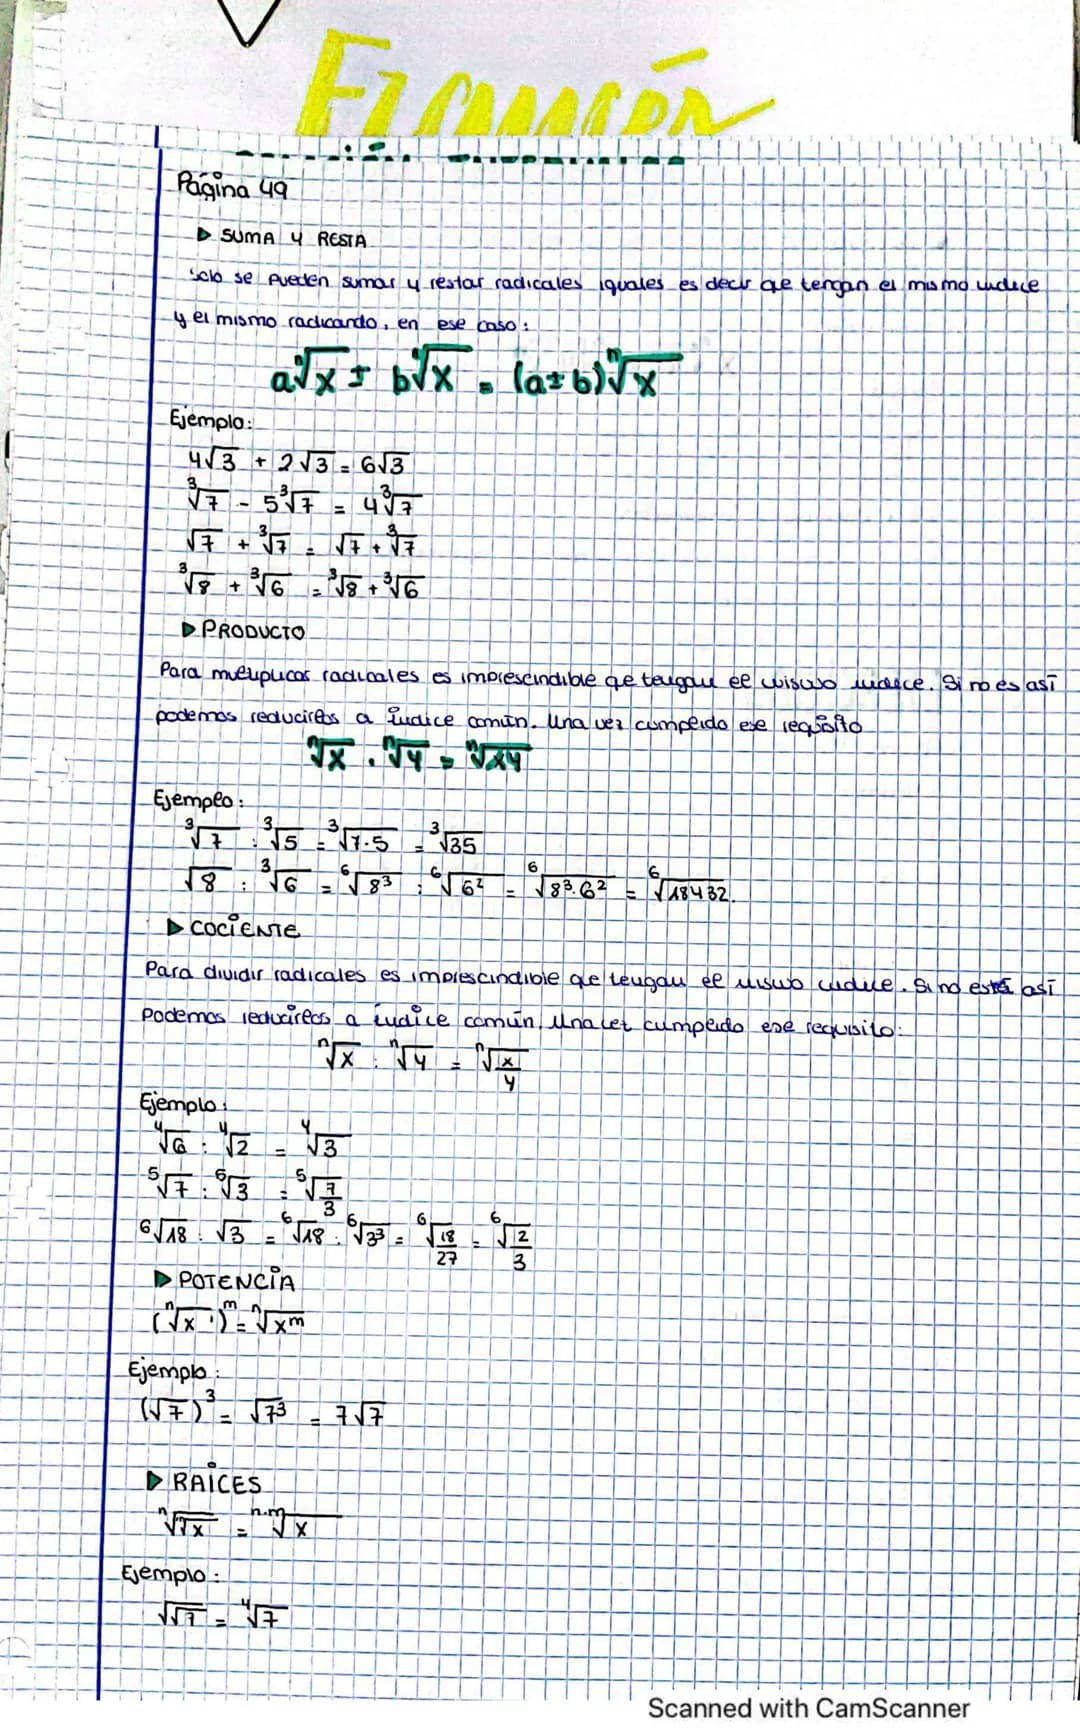 Examen
Página 49
▷ SUMA Y RESTA
Solo se pueden sumar y restar radicales iguales es decir que tengan el mismo indice
y el mismo radicando, en ese caso:
a ⁿ√x ± b ⁿ√x = (a±b) ⁿ√x
Ejemplo:
4√3 + 2√3 = 6√3
³√7 - 5³√7 = 4³√7
√7 + ³√7 = √7 + ³√7
³√8 + ³√6 = ³√8 + ³√6
▷ PRODUCTO
Para multiplicar radicales es imprescindible qe tengan el mismo indice. Si no es así
podemos reducirlos a índice común. Una vez cumplido ese requisito
ⁿ√x . ⁿ√y = ⁿ√xy
Ejemplo:
³√7 : ³√5 = ³√7·5 = ³√35
√8 : ³√6 = ⁶√8³ : ⁶√6² = ⁶√8³·6² = ⁶√18432.
▷ COCIENTE
Para dividir radicales es imprescindible qe tengan el mismo indice. Si no está así
Podemos reducirlos a índice común. Una vez cumplido ese requisito:
ⁿ√x : ⁿ√y = ⁿ√x/y
Ejemplo:
⁴√6 : ⁴√2 = ⁴√3
⁵√7 : ⁵√3 = ⁵√7/3
⁶√18 : √3 = ⁶√18 : ⁶√3³ = ⁶√18/27 = ⁶√2/3
▷ POTENCIA
(ⁿ√x )ᵐ = ⁿ√xᵐ
Ejemplo:
(√7)³ = √7³ = 7√7
▷ RAICES
ⁿ√√x = ⁿ·ᵐ√x
Ejemplo:
√√7 = ⁴√7
Scanned with CamScanner